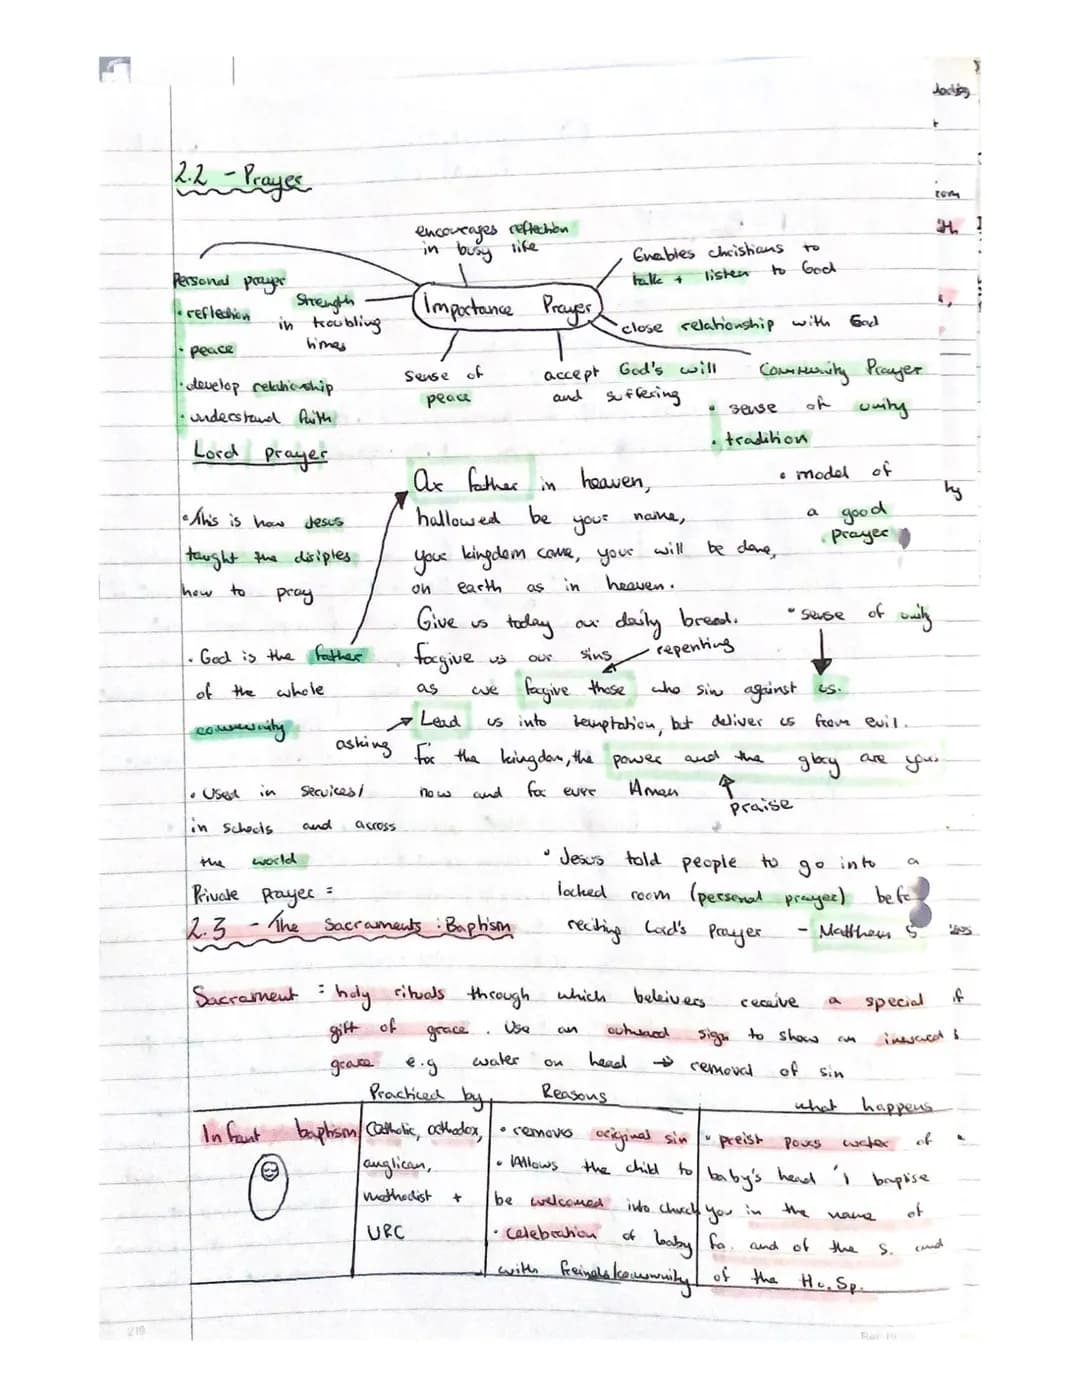 2.2 - Prayer
encourages reflection
in busy life
Enables christians to
talk + listen to God
Personal prayer
• reflection
• peace
• develop relationship
• understand faith
Strength
in troubling
times
Importance Prayer
close relationship with God
sense of
peace
accept God's will
and suffering
Community Prayer
• sense of unity
• tradition
• model of
a good
prayer
• sense of unity
Lord prayer
• This is how Jesus
taught the disiples
how to pray
• God is the father
of the whole
community
• Used in services/
in schools and across
the world
Our father in heaven,
hallowed be your name,
your kingdom come, your will be done,
on earth as in heaven.
Give us today our daily bread.
forgive us our sins
repenting
as we forgive those who sin against us.
asking
Lead us into temptation, but deliver us from evil.
For the kingdom, the power and the glory are yours
now and for ever Amen
praise
Private prayer =
• Jesus told people to go into a
locked room (personal prayer) befo
reciting Lord's Prayer - Matthew 5
2.3 - The Sacraments : Baptism
Sacrament = holy rituals through which beleivers receive a special
gift of grace. Use an outward sign to show an inward
grace e.g water on head → removal of sin
Practiced by
Reasons
what happens
Infant baptism
Catholic, orthodox,
anglican,
methodist +
URC
• removes original sin
• Allows the child to
be welcomed into church
• celebration of baby
with freinds/community
• preist pours water of
baby's head 'I baptise
you in the name of
fa. and of the s. and
of the Ho. Sp.